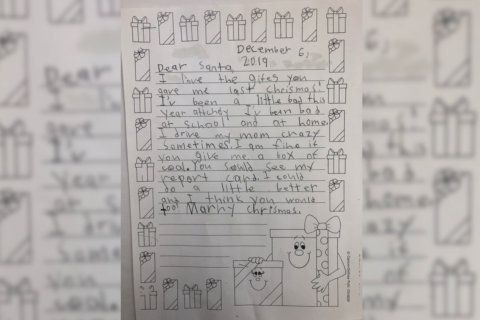 December 6,
2019
Dear Santa
I love the gifes you
gave me last chrismas!
I'v been a little bad this
year attchaly I'v been bad
at school and at home.
I drive my mom crazy
sometimes. I am fine if
you give me a box of
coal. You sould see my
report card. I could
do a little better
and I think you would
too! Marry chrismas.